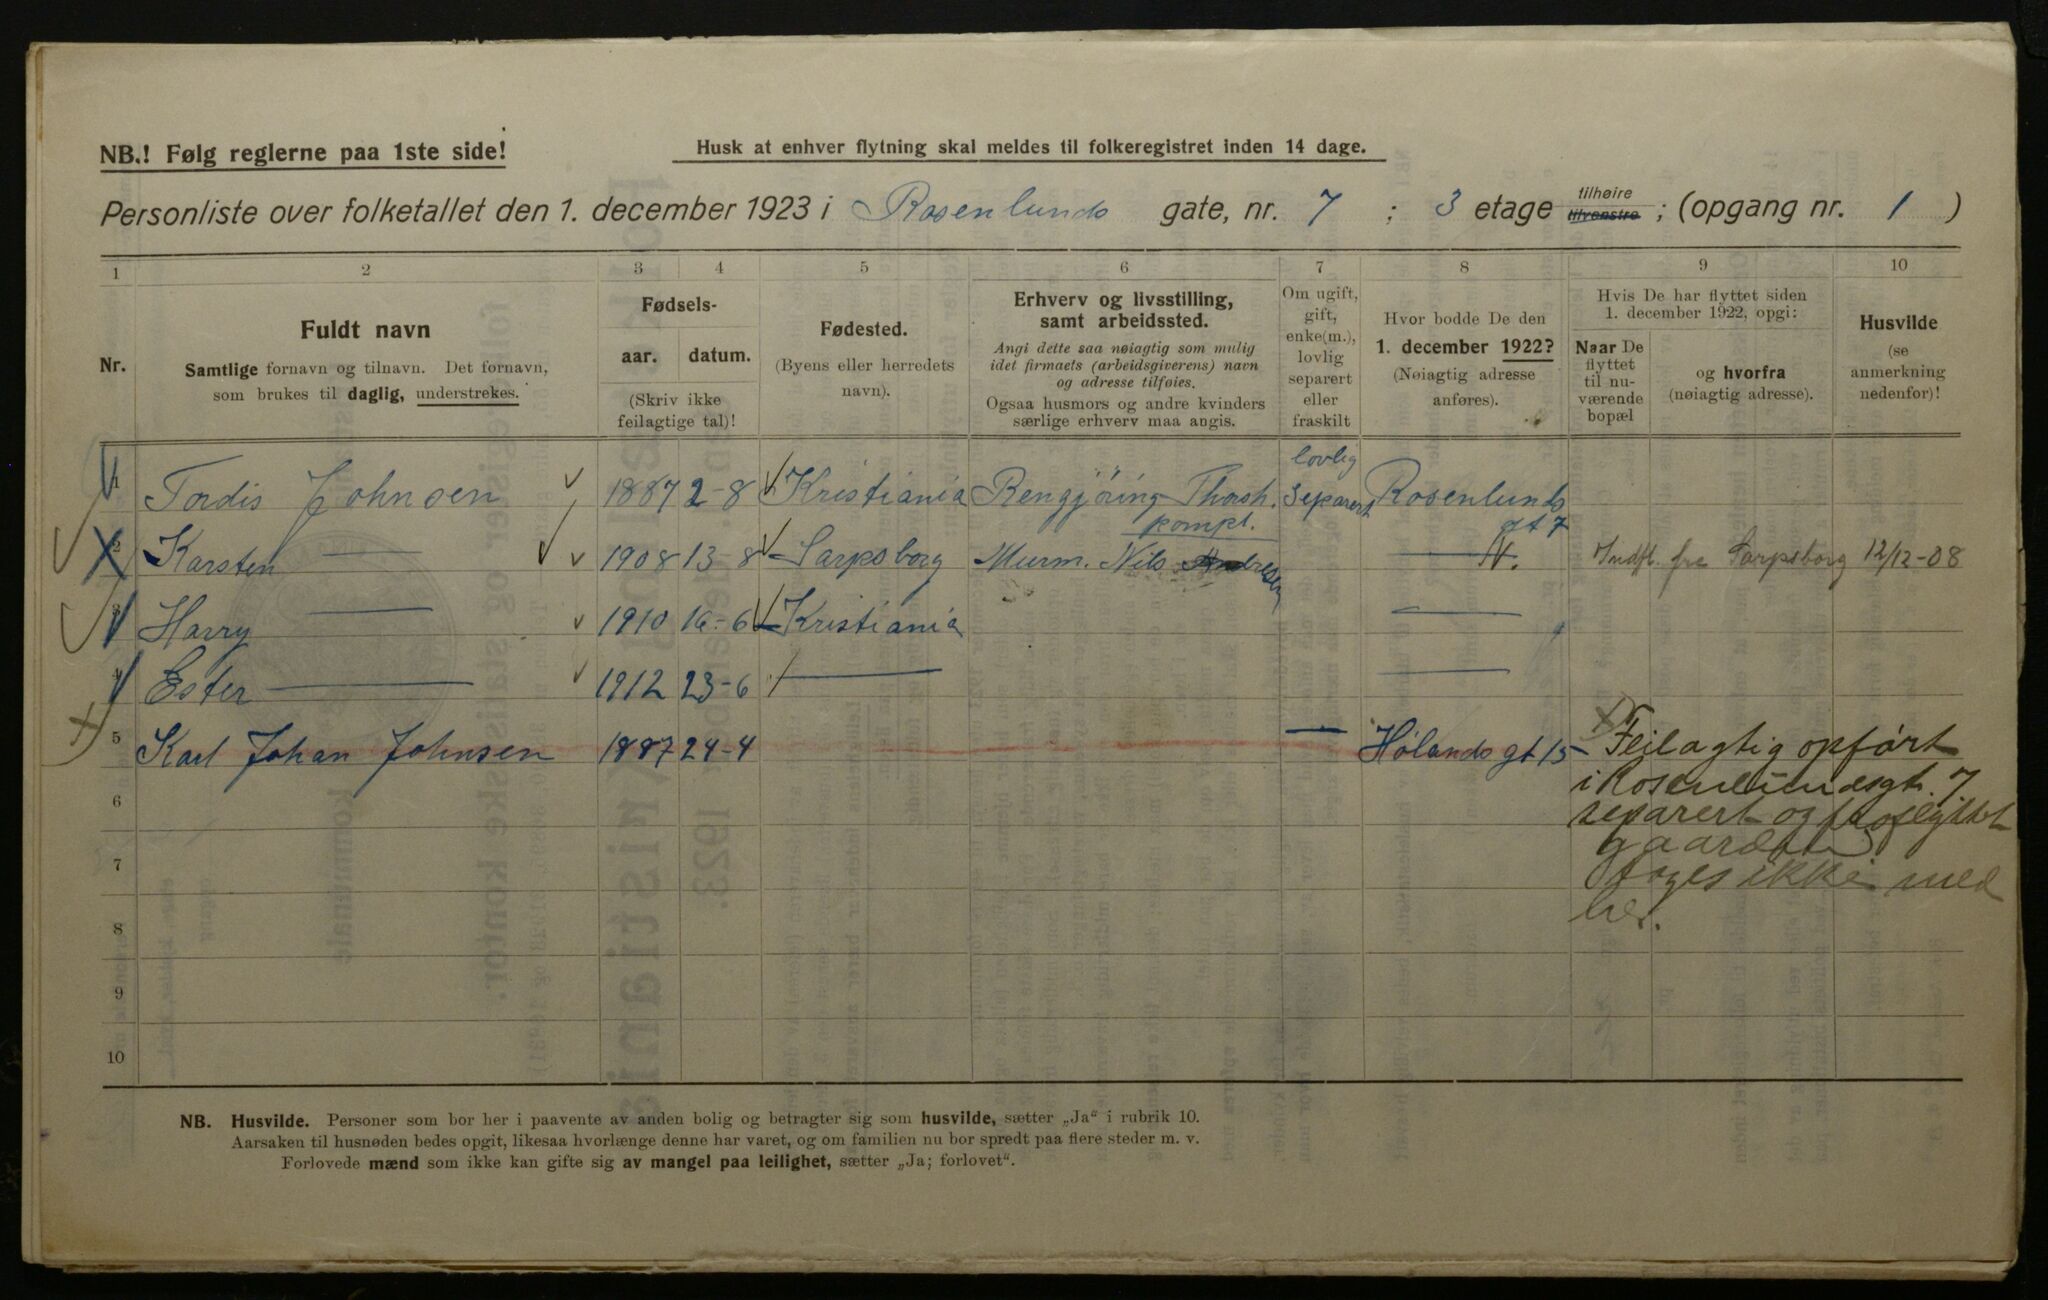 NB.! Følg reglerne paa 1ste side!
Husk at enhver flytning skal meldes til folkeregistret inden 14 dage.
Personliste over folketallet den 1. december 1923 i Rosenlunds gate, nr. 7 ; 3 etage tilhøire tilvenstre ; (opgang nr. 1 )
1 2 3 4 5 6 7 8 9 10
Nr.
Fuldt navn
Samtlige fornavn og tilnavn. Det fornavn,
som brukes til daglig, understrekes.
Fødsels-
aar. datum.
(Skriv ikke
feilagtige tal)!
Fødested.
(Byens eller herredets
navn).
Erhverv og livsstilling,
samt arbeidssted.
Angi dette saa nøiagtig som mulig
idet firmaets (arbeidsgiverens) navn
og adresse tilføies.
Ogsaa husmors og andre kvinders
særlige erhverv maa angis.
Om ugift,
gift,
enke(m.),
lovlig
separert
eller
fraskilt
Hvor bodde De den
1. december 1922?
(Nøiagtig adresse
anføres).
Hvis De har flyttet siden
1. december 1922, opgi:
Naar De
flyttet
til nu-
værende
bopæl
og hvorfra
(nøiagtig adresse).
Husvilde
(se
anmerkning
nedenfor)!
lovlig
1 Tordis Johnsen 1887 2-8 Kristiania Rengjöring Thorsh. Separert Rosenlunds
kompl. gt 7
2 Karsten — 1908 13-8 Sarpsborg Murm. Nils Andresen — Indfl. fra Sarpsborg 12/12-08
3 Harry — 1910 16-6 Kristiania —
4 Ester — 1912 23-6 — —
5 Karl Johan Johnsen 1887 24-4 — Hölands gt 15 - Feilagtig opført
i Rosenlundsgt. 7
separert og fraflyttet
gaarden
tages ikke med
her.
6
7
8
9
10
NB. Husvilde. Personer som bor her i paavente av anden bolig og betragter sig som husvilde, sætter „Ja“ i rubrik 10.
Aarsaken til husnøden bedes opgit, likesaa hvorlænge denne har varet, og om familien nu bor spredt paa flere steder m. v.
Forlovede mænd som ikke kan gifte sig av mangel paa leilighet, sætter „Ja; forlovet“.